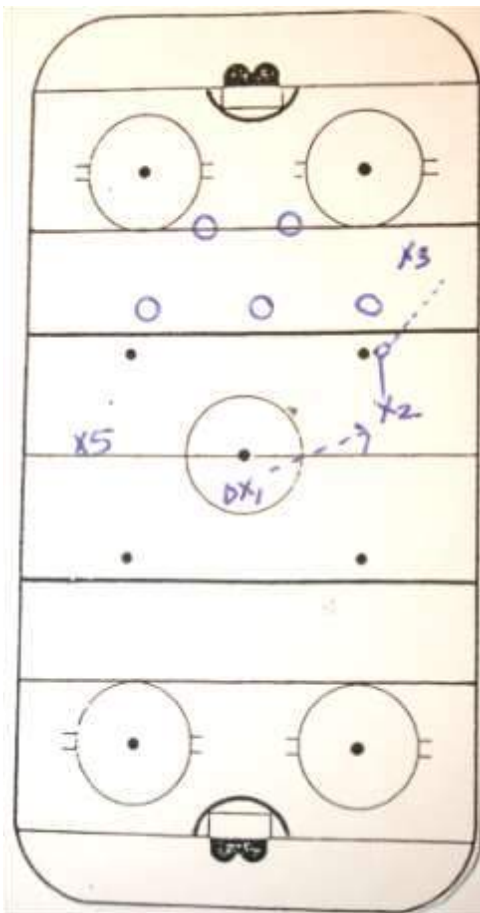 X3
X2
X5
DX1